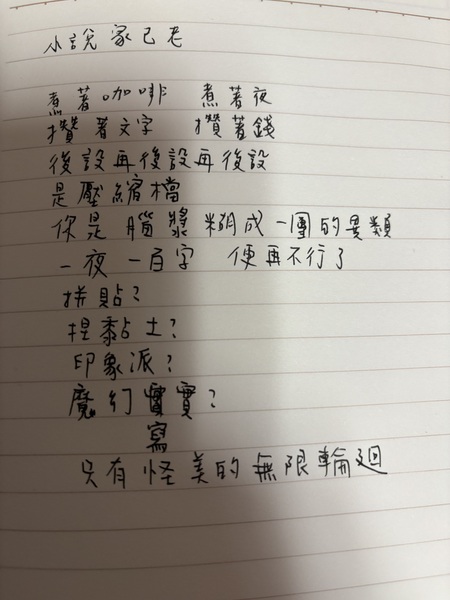 小說家已老
煮著咖啡 煮著夜
攢著文字 攢著錢
後設再後設再後設
是壓縮檔
你是腦漿糊成一團的異類
一夜一百字 便再不行了
拼貼?
捏黏土?
印象派?
魔幻寫實?
只有怪美的無限輪迴